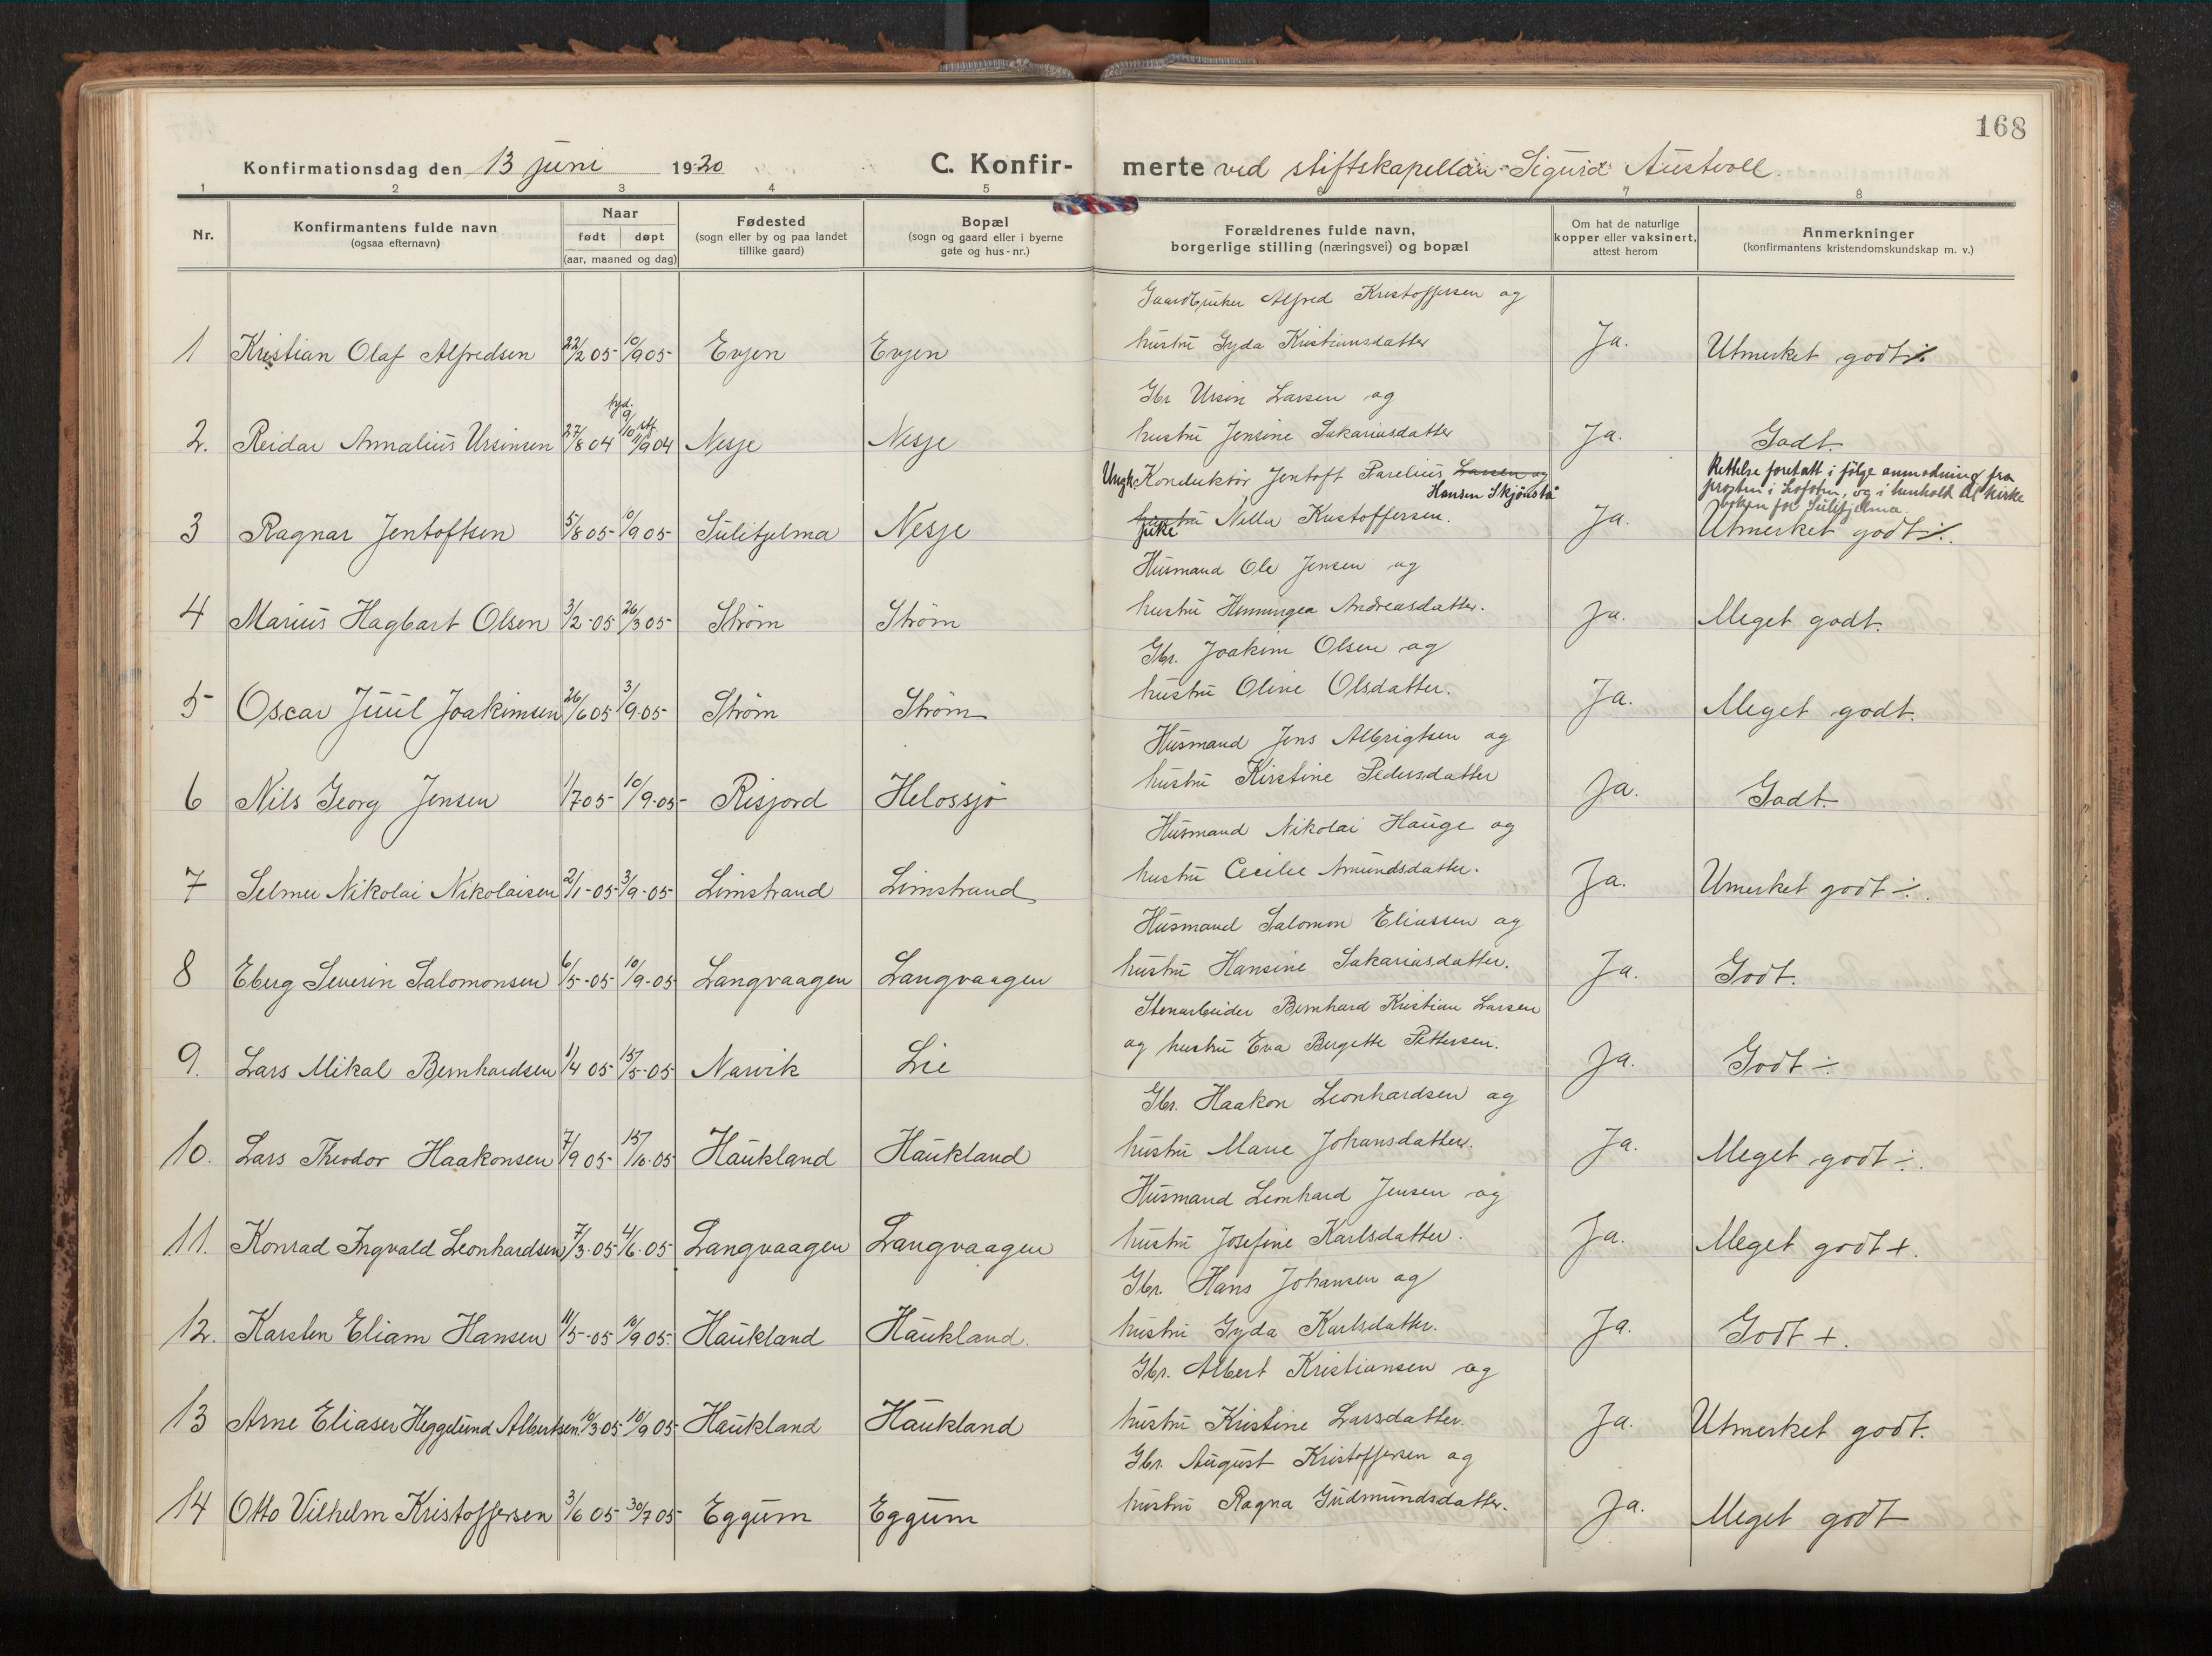 168
Konfirmationsdag den 13 juni 1920 C. Konfirmerte ved stiftskapellan Sigurd Austvoll.
1 2 3 4 5 6 7 8
Nr. Konfirmantens fulde navn (ogsaa efternavn) Naar født døpt (aar, maaned og dag) Fødested (sogn eller by og paa landet tillike gaard) Bopæl (sogn og gaard eller i byerne gate og hus-nr.) Forældrenes fulde navn, borgerlige stilling (næringsvei) og bopæl Om hat de naturlige kopper eller vaksinert, attest herom Anmerkninger (konfirmantens kristendomskundskap m. v.)
Gaardbruker Alfred Kristoffersen og
1 Kristian Olaf Alfredsen 22/2 05 10/9 05 Evjen Evjen hustru Gyda Kristiansdatter Ja. Utmerket godt ⁒
Gbr Ursin Larsen og
2. Reidar Annalius Ursinsen 27/8 04 hjd. 9/10 stf. 11/9 04 Nesje Nesje hustru Jensine Sakariasdatter Ja. Godt.
Ungk. Konduktör Jentoft Parelius Larsen og
Hansen Skjönstå
Rettelse foretatt i følge anmodning fra
prosten i Lofoten, og i henhold til kirke
boken for Sulitjelma.
3 Ragnar Jentoftsen 5/8 05 10/9 05 Sulitjelma Nesje hustru pike Nella Kristoffersen. Ja. Utmerket godt ⁒.
Husmand Ole Jensen og
4 Marius Hagbart Olsen 3/2-05 26/3 05 Strøm Strøm hustru Henningea Andreasdatter. Ja. Meget godt.
Gbr. Joakim Olsen og
5 Oscar Juul Joakimsen 26/6 05 3/9-05 Strøm Strøm hustru Oline Olsdatter. Ja. Meget godt.
Husmand Jens Albrigtsen og
6 Nils Georg Jensen 1/7 05 10/9-05 Risjord Helossjö hustru Kirstine Pedersdatter Ja. Godt.
Husmand Nikolai Hauge og
7 Selmer Nikolai Nikolaisen 2/1-05 3/9-05 Limstrand Limstrand hustru Cecilie Amundsdatter. Ja. Umerket godt ÷.
Husmand Salomon Eliassen og
8 Eberg Severin Salomonsen 6/5-05 10/9-05 Langvaagen Langvaagen hustru Hansine Sakariasdatter. Ja. Godt.
Stenarbeider Bernhard Kristian Larsen
9. Lars Mikal Bernhardsen 1/4 05 15/5-05 Narvik Lie og hustru Eva Bergette Pettersen. Ja. Godt ÷
Gbr. Haakon Leonhardsen og
10. Lars Theodor Haakonsen 7/9 05 15/10-05 Haukland Haukland hustru Marie Johansdatter. Ja. Meget godt ÷.
Husmand Leonhard Jensen og
11. Konrad Ingvald Leonhardsen 7/3-05 4/6-05 Langvaagen Langvaagen hustru Josefine Karlsdatter. Ja. Meget godt +.
Gbr. Hans Johansen og
12. Karsten Eliam Hansen 11/5-05 10/9 05. Haukland Haukland. hustru Gyda Karlsdatter. Ja. Godt +.
Gbr. Albert Kristiansen og
13 Arne Elias Heggelund Albertsen. 10/3 05 10/9 05 Haukland Haukland hustru Kristine Larsdatter. Ja. Utmerket godt.
Gbr. August Kristoffersen og
14 Otto Vilhelm Kristoffersen 3/6 05 30/7 05 Eggum Eggum hustru Ragna Gudmundsdatter. Ja. Meget godt